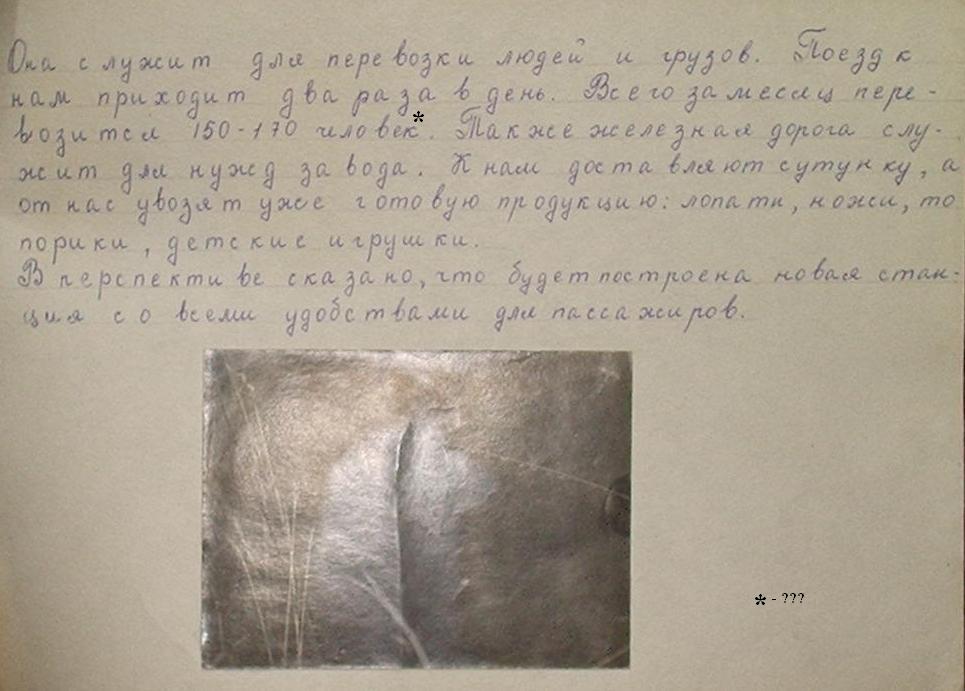 Она служит для перевозки людей и грузов. Поезд к
нам приходит два раза в день. Всего за месяц пере-
возится 150-170 человек*. Также железная дорога слу-
жит для нужд завода. К нам доставляют сутунку, а
от нас увозят уже готовую продукцию: лопаты, ножи, то
порики, детские игрушки.
В перспективе сказано, что будет построена новая стан-
ция со всеми удобствами для пассажиров.
* - ???